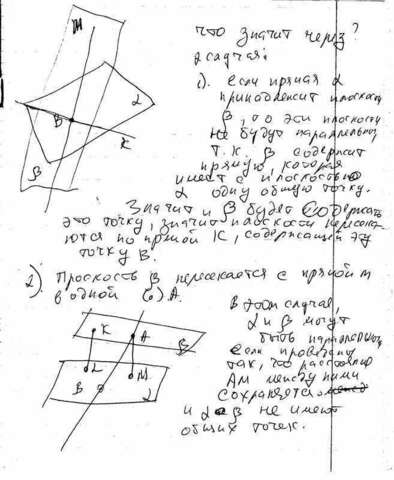 что значит через?
2 случая:
1). если прямая α
принадлежит плоскости
β, то эти плоскости
не будут параллельны
т.к. β содержит
прямую, которая
имеет с плоскостью
α одну общую точку.
Значит и β будет содержать
эту точку, значит плоскости пересека-
ются по прямой К, содержащей эту
точку В.
2). Плоскость β пересекается с прямой m
в одной (о) А.
В этом случае,
α и β могут
быть параллельны
если проведены
так, что расстояние
АМ между ними
сохраняется
и α и β не имеют
общих точек.
m
α
В
К
β
К
А
β
L
М
В
α